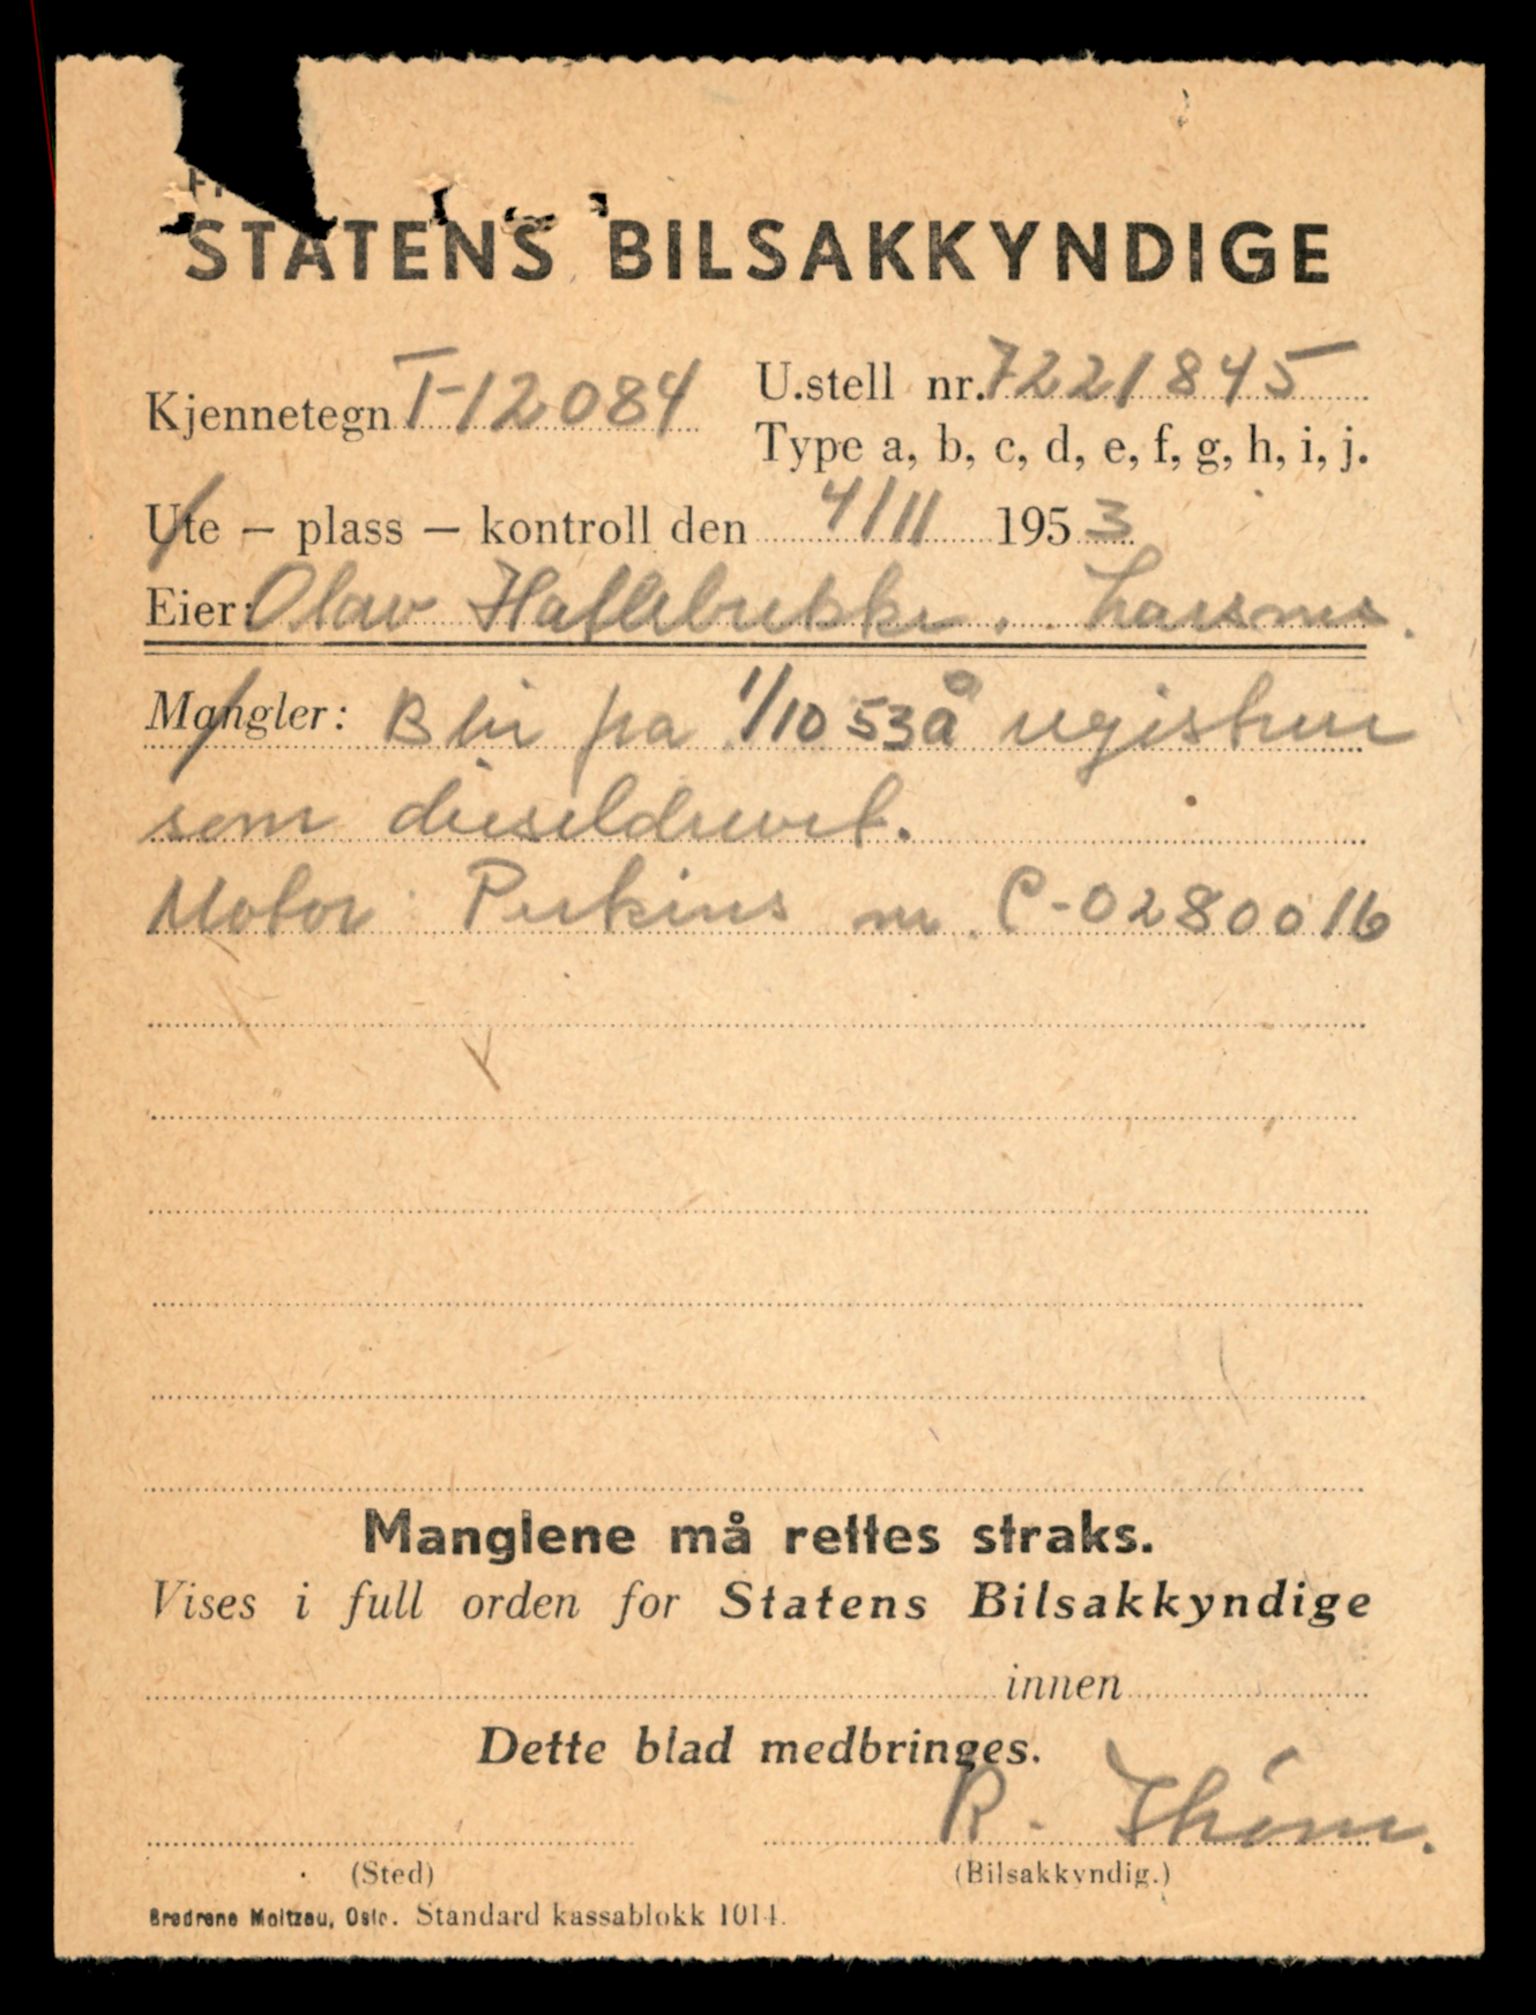 STATENS BILSAKKYNDIGE
Kjennetegn T-12084
U.stell nr. 7221845
Type a, b, c, d, e, f, g, h, i, j.
Ute – plass – kontroll den 4/11 1953
Eier: Olav
Mangler: Blir fra 1/10 53 å registrere
som dieseldrevet.
Motor Perkins nr. C-0280016
Manglene må rettes straks.
Vises i full orden for Statens Bilsakkyndige
innen
Dette blad medbringes.
R.
(Sted) (Bilsakkyndig.)
Brødrene Moltzau, Oslo. Standard kassablokk 1014.